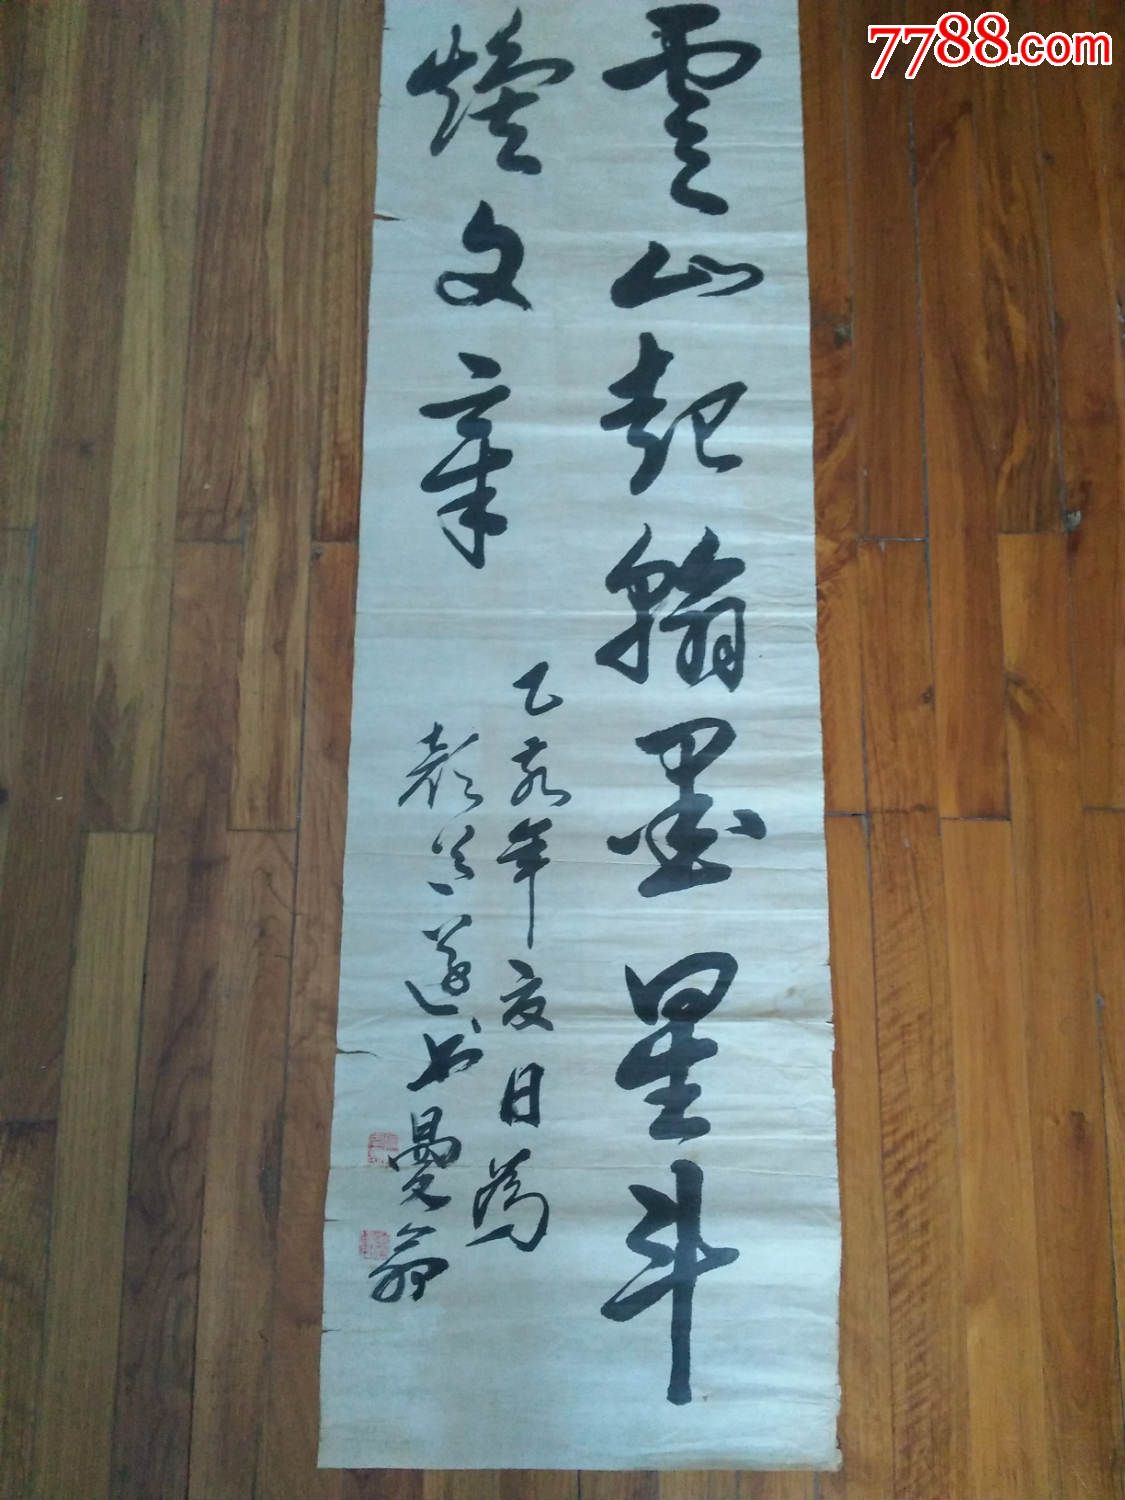 7788.com
雲山起翰墨星斗
煥文章
乙亥年夏日為
彭公遜書曼翁